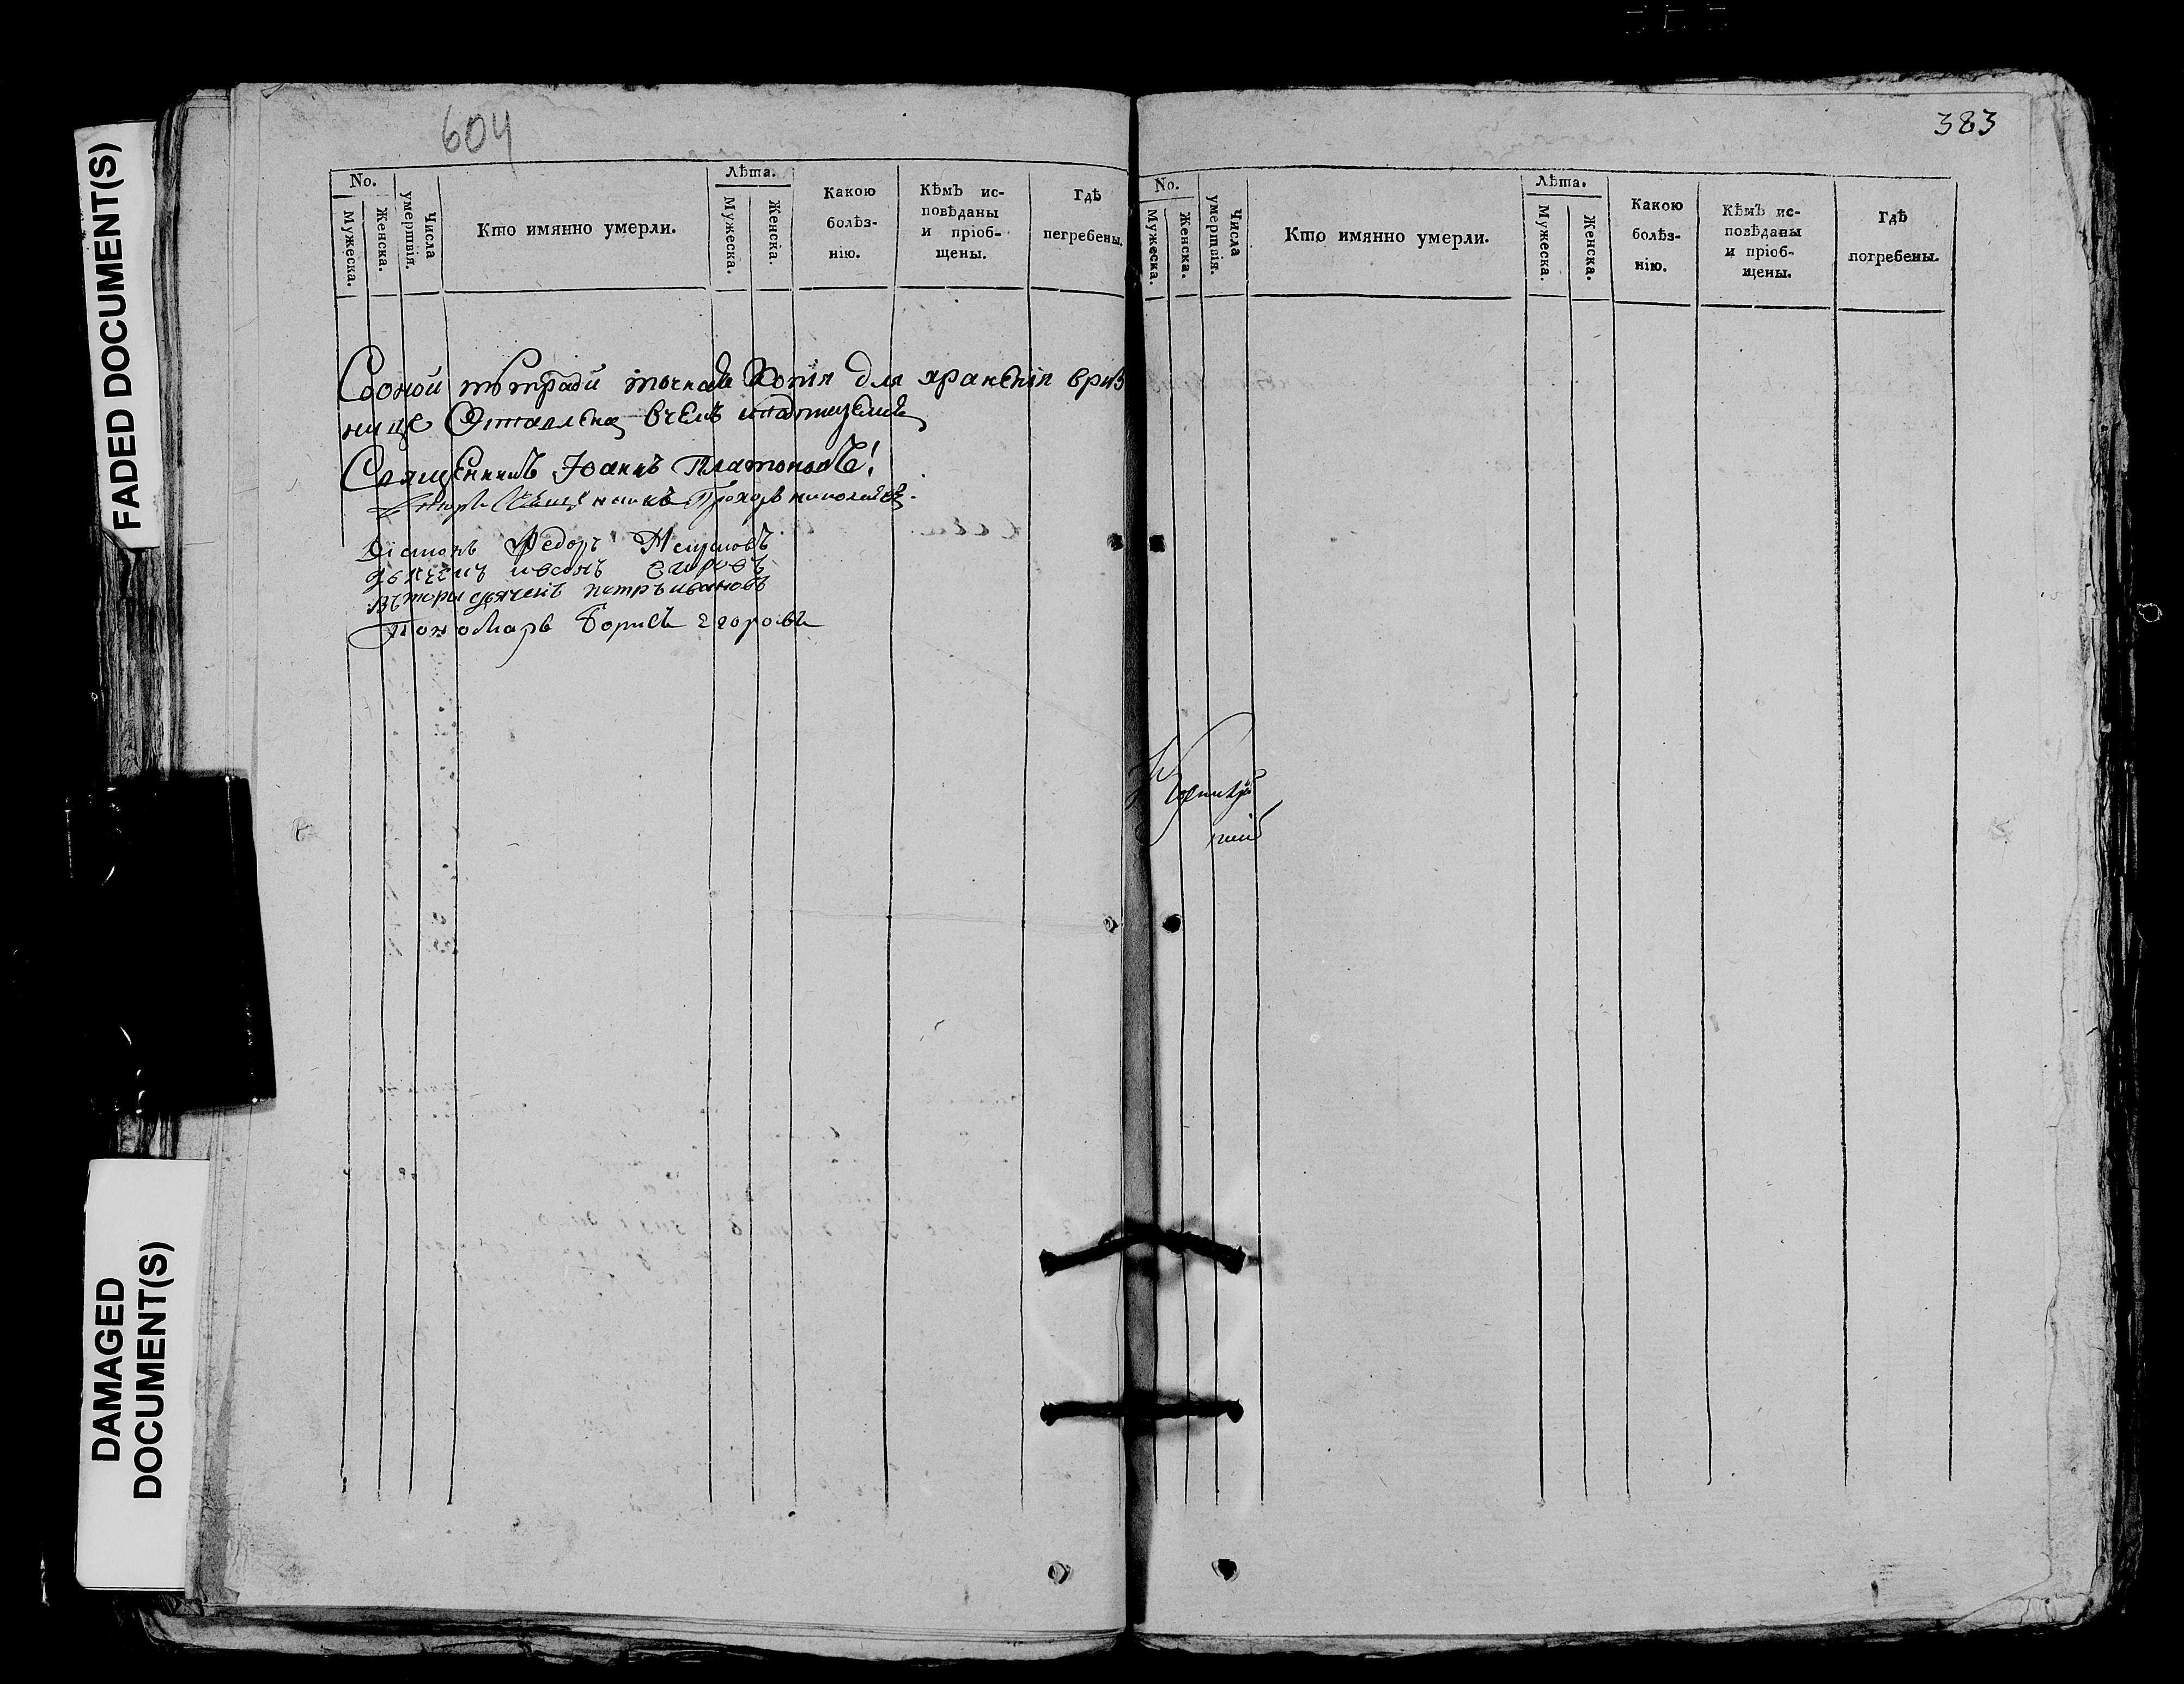 FADED DOCUMENT(S)
DAMAGED
DOCUMENT(S)
604
No.
Мужеска.
Женска.
Числа
умертвія.
Кто имянно умерли.
Лѣта.
Мужеска.
Женска.
Какою
болѣз-
нію.
Кѣмъ ис-
повѣданы
и пріоб-
щены.
Гдѣ
пегребены.
Соной тѣтради точная Копія для храненія вриз
нице Оставлена вчемъ
Священникъ Іоаннъ Платоновъ!
Священникъ Прохоръ николаевъ
Діаконъ Федоръ
Дьячекъ иванъ
Вторы дьячекъ петръ ивановъ
Пономарь Борисъ егоровъ
383
No.
Мужеска.
Женска.
Числа
умертвія.
Кто имянно умерли.
Лѣта.
Мужеска.
Женска.
Какою
болѣз-
нію.
Кѣмъ ис-
повѣданы
и пріоб-
щены.
Гдѣ
погребены.